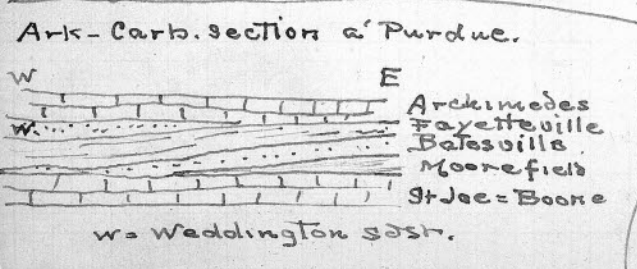 Ark-Carb. section a' Purdue.
W E
Archimedes
W. Fayetteville
Batesville
Moorefield
St Joe = Boone
W = Weddington sdst.